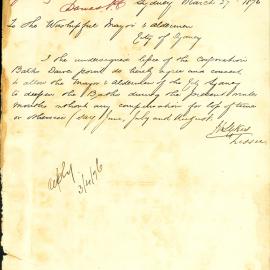 Dawes Pt Sydney March 27th 1876
To the Worshipful Mayor & aldermen
City of Sydney
I the undersigned lessee of the Corporation
Baths Dawes point do hereby agree and consent
to allow the Mayor & Alderman of the City Sydney
to deepen the Baths during the present winter
months without any compensation for loss of time
or otherwise (say) June, July and August.
Lessee
3/4/76